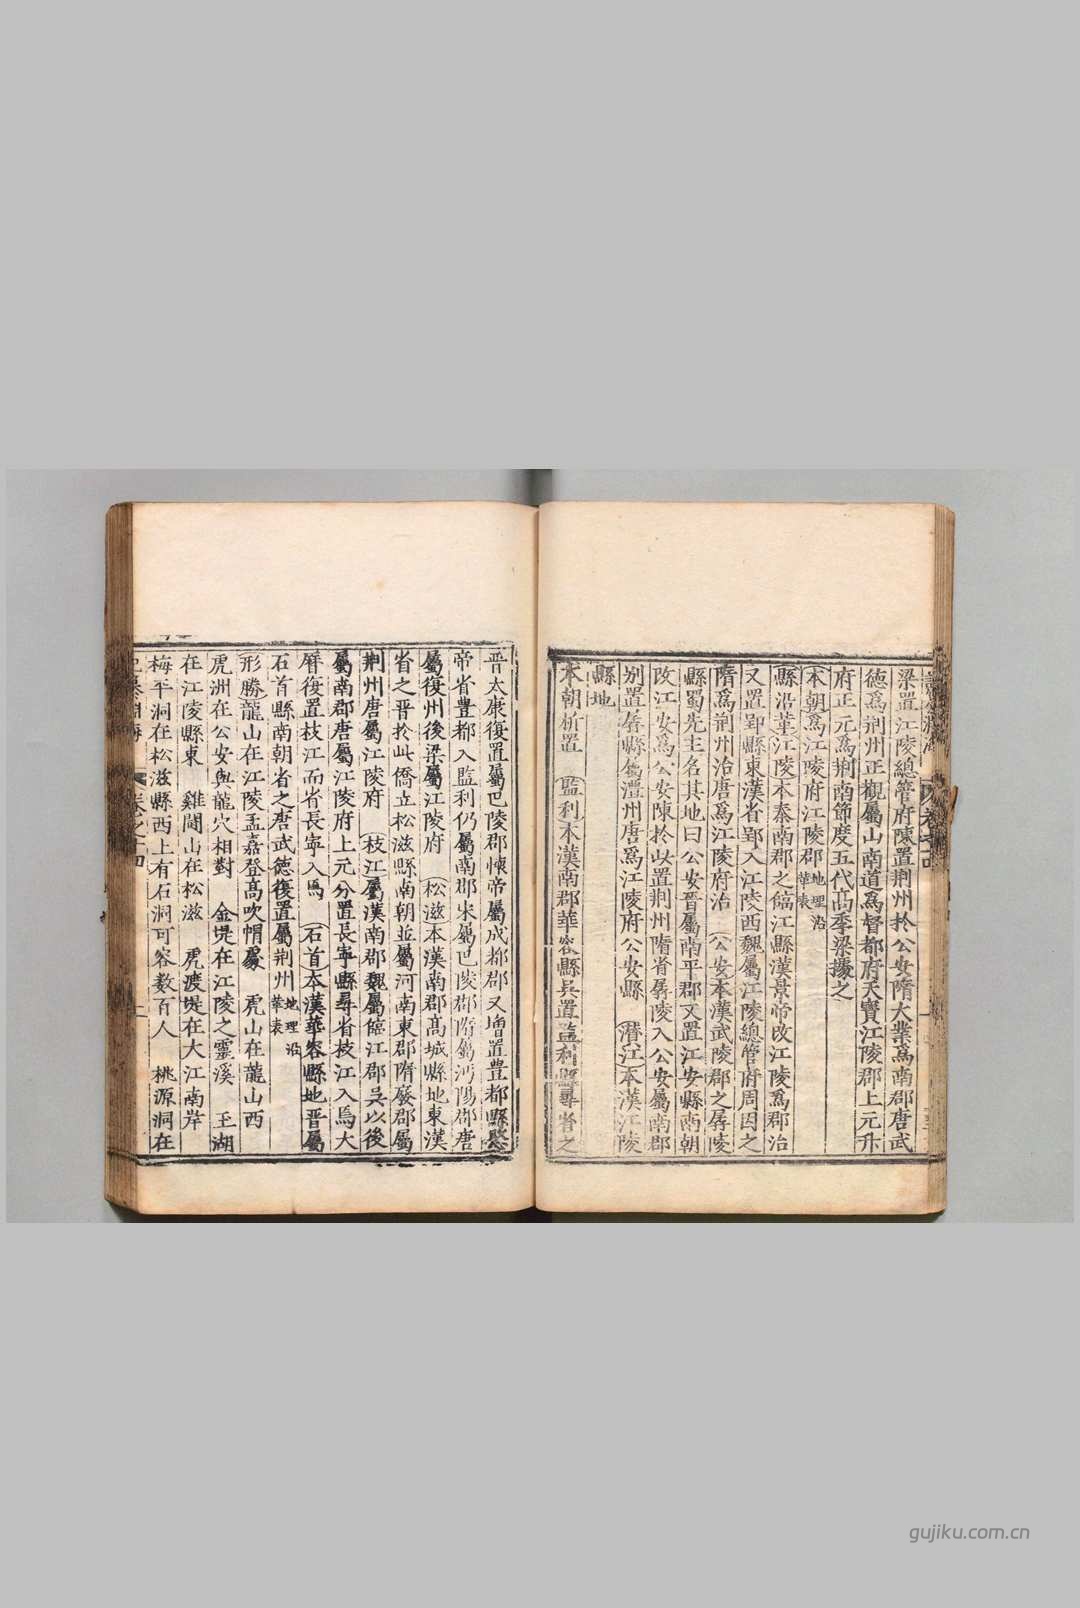 梁置江陵總管府陳置荆州於公安隋大業爲南郡唐武
德爲荆州正觀屬山南道爲督都府天寶江陵郡上元升
府正元爲荆南節度五代高季梁據之
本朝爲江陵府江陵郡地理沿革表
縣沿革江陵本秦南郡之臨江縣漢景帝改江陵爲郡治
又置郢縣東漢省郢入江陵西魏屬江陵總管府周因之
隋爲荆州治唐爲江陵府治 公安本漢武陵郡之孱陵
縣蜀先主名其地曰公安晉屬南平郡又置江安縣南朝
改江安爲公安陳於此置荆州隋省孱陵入公安屬南郡
别置孱縣屬澧州唐爲江陵府公安縣 潛江本漢江陵
縣地
本朝析置 監利本漢南郡華容縣吳置監利縣尋省之
晉太康復置屬巴陵郡懷帝屬成都郡又增置豊都縣愍
帝省豊都入監利仍屬南郡宋屬巴陵郡隋屬沔陽郡唐
屬復州後梁屬江陵府 松滋本漢南郡高城縣地東漢
省之晉於此僑立松滋縣南朝並屬河南東郡隋廢郡屬
荆州唐屬江陵府 枝江屬漢南郡魏屬臨江郡吳以後
屬南郡唐屬江陵府上元分置長寧縣尋省枝江入焉大
曆復置枝江而省長寧入焉 石首本漢華容縣地晉屬
石首縣南朝省之唐武德復置屬荆州地理沿革表
形勝龍山在江陵孟嘉登高吹帽處 虎山在龍山西
虎洲在公安與龍穴相對 金堤在江陵之靈溪 玉湖
在江陵縣東 雞鬬山在松滋 虎渡堤在大江南岸
梅平洞在松滋縣西上有石洞可容數百人 桃源洞在
卷之十四
gujiku.com.cn